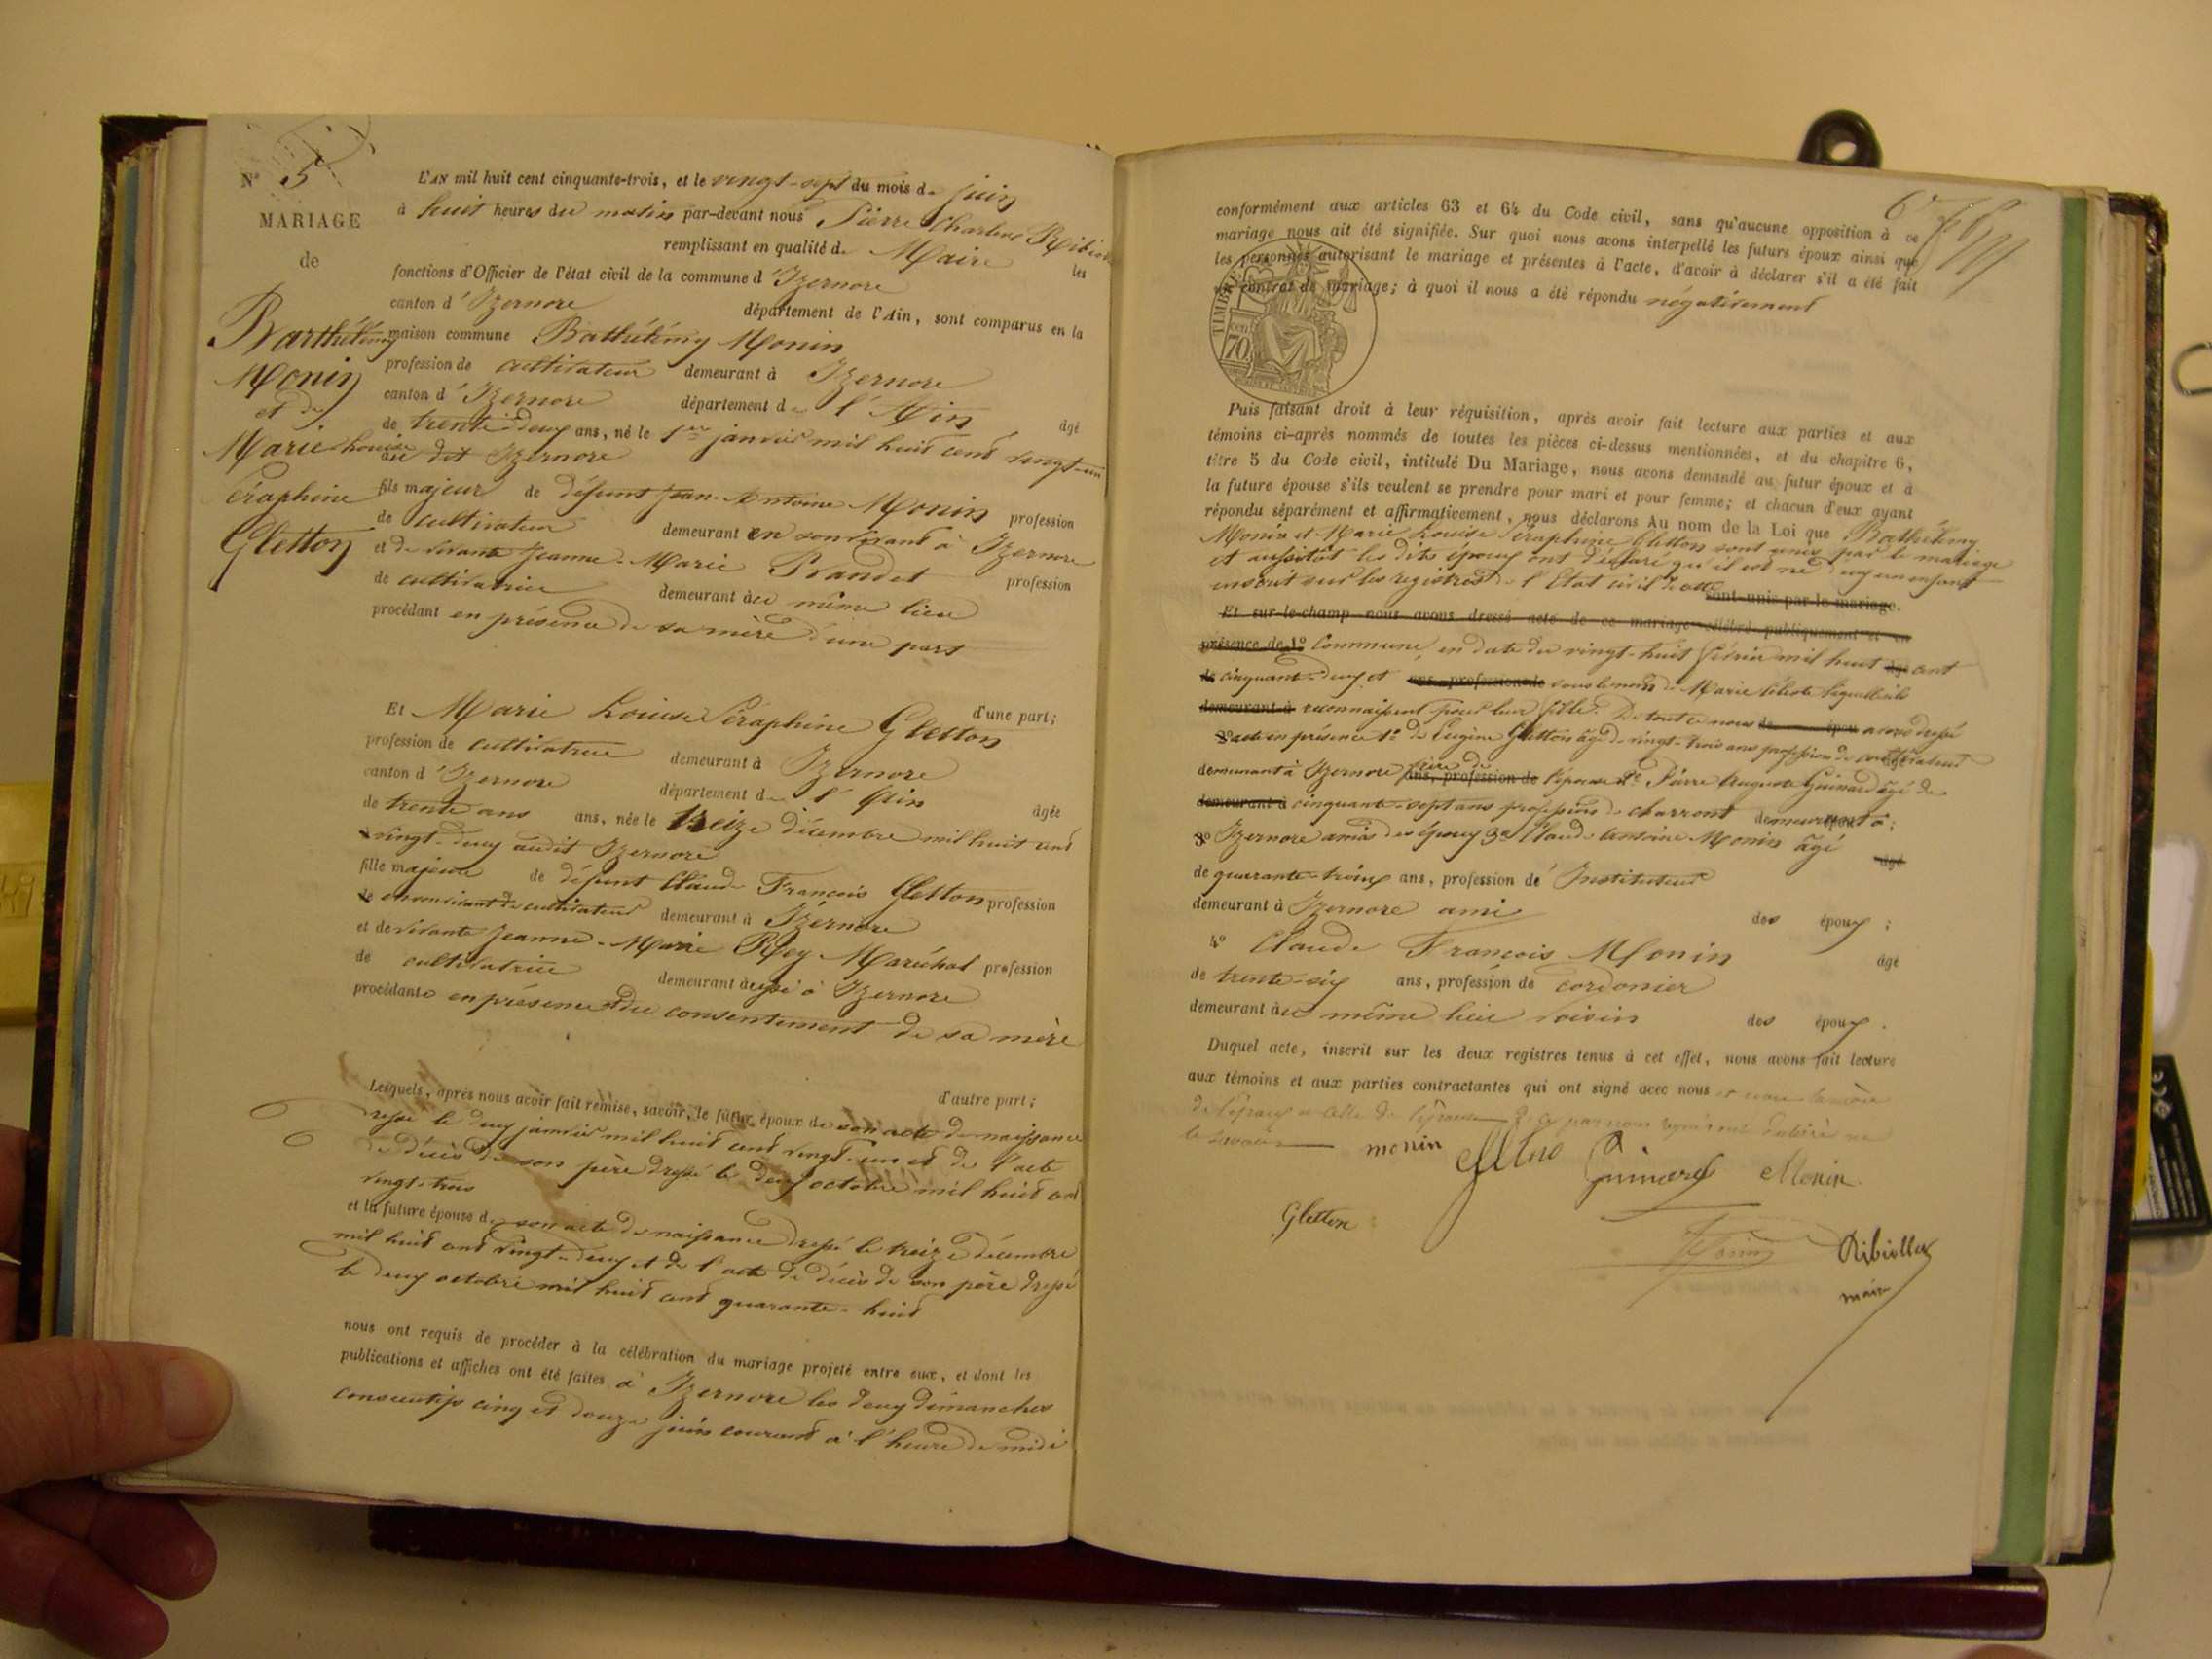 N° 5
MARIAGE
de
Barthélémy
Monin
et de
Marie Louise
Séraphine
Gletton
L'AN mil huit cent cinquante-trois, et le vingt-sept du mois de juin
à huit heures du matin par-devant nous Pierre Charles Ribiollet
remplissant en qualité de Maire les
fonctions d'Officier de l'état civil de la commune d'Izernore
canton d'Izernore département de l'Ain, sont comparus en la
maison commune Bathélémy Monin
profession de cultivateur demeurant à Izernore
canton d'Izernore département de l'Ain âgé
de trente-deux ans, né le 1er janvier mil huit cent vingt-un
au dit Izernore
fils majeur de défunt Jean-Antoine Monin profession
de cultivateur demeurant en son vivant à Izernore
et de vivante Jeanne-Marie profession
de cultivatrice demeurant à ce même lieu
procédant en présence de sa mère d'une part
d'une part;
Et Marie Louise Séraphine Gletton
profession de cultivatrice demeurant à Izernore
canton d'Izernore département de l'Ain âgée
de trente ans ans, née le treize décembre mil huit cent
vingt-deux audit Izernore
fille majeure de défunt Claude François Gletton profession
de en son vivant de cultivateur demeurant à Izernore
et de vivante Jeanne-Marie Rey-Maréchal profession
de cultivatrice demeurant à Izernore
procédante en présence et du consentement de sa mère
d'autre part;
Lesquels, après nous avoir fait remise, savoir, le futur époux de son acte de naissance
dressé le deux janvier mil huit cent vingt-un et de l'acte
de décès de son père dressé le deux octobre mil huit cent
vingt-trois
et la future épouse de son acte de naissance dressé le treize décembre
mil huit cent vingt-deux et de l'acte de décès de son père dressé
le deux octobre mil huit cent quarante-huit
nous ont requis de procéder à la célébration du mariage projeté entre eux, et dont les
publications et affiches ont été faites à Izernore les deux dimanches
consecutifs cinq et douze juin courant à l'heure de midi
conformément aux articles 63 et 64 du Code civil, sans qu'aucune opposition à ce
mariage nous ait été signifiée. Sur quoi nous avons interpellé les futurs époux ainsi que
les personnes autorisant le mariage et présentes à l'acte, d'avoir à déclarer s'il a été fait
un contrat de mariage; à quoi il nous a été répondu négativement
TIMBRE
70
Puis faisant droit à leur réquisition, après avoir fait lecture aux parties et aux
témoins ci-après nommés de toutes les pièces ci-dessus mentionnées, et du chapitre 6,
titre 5 du Code civil, intitulé Du Mariage, nous avons demandé au futur époux et à
la future épouse s'ils veulent se prendre pour mari et pour femme; et chacun d'eux ayant
répondu séparément et affirmativement, nous déclarons Au nom de la Loi que Bathélémy
Monin et Marie Louise Séraphine Gletton sont unis par le mariage
et aussitôt les dits époux ont déclaré qu'il est né d'eux un enfant
inscrit sur les registres de l'Etat civil de cette sont unis par le mariage.
Et sur-le-champ nous avons dressé acte de ce mariage célébré publiquement et en
présence de 1° Commune, en date du vingt-huit février mil huit âgé cent
de cinquante-deux et ans, profession de sous le nom de Marie Céleste laquelle ils
demeurant à reconnaissent pour leur fille. De tout ce nous de épou avons dressé
acte en présence 1° de Eugène Gletton âgé de vingt-trois ans profession de cultivateur
demeurant à Izernore frère de ans, profession de l'épouse 2° Pierre Auguste Guinard âgé de
demeurant à cinquante-sept ans profession de charront demeurant à
3° Izernore amis des époux 3° Claude Antoine Monin âgé âgé
de quarante-trois ans, profession de Instituteur
demeurant à Izernore ami des époux;
4° Claude François Monin âgé
de trente-six ans, profession de cordonier
demeurant à ce même lieu voisin des époux.
Duquel acte, inscrit sur les deux registres tenus à cet effet, nous avons fait lecture
aux témoins et aux parties contractantes qui ont signé avec nous et non la mère
de l'époux ni celle de l'épouse de ce par nous requis ont déclaré ne
le savoir
monin Guinard Monin
Gletton Monin Ribiollet
maire